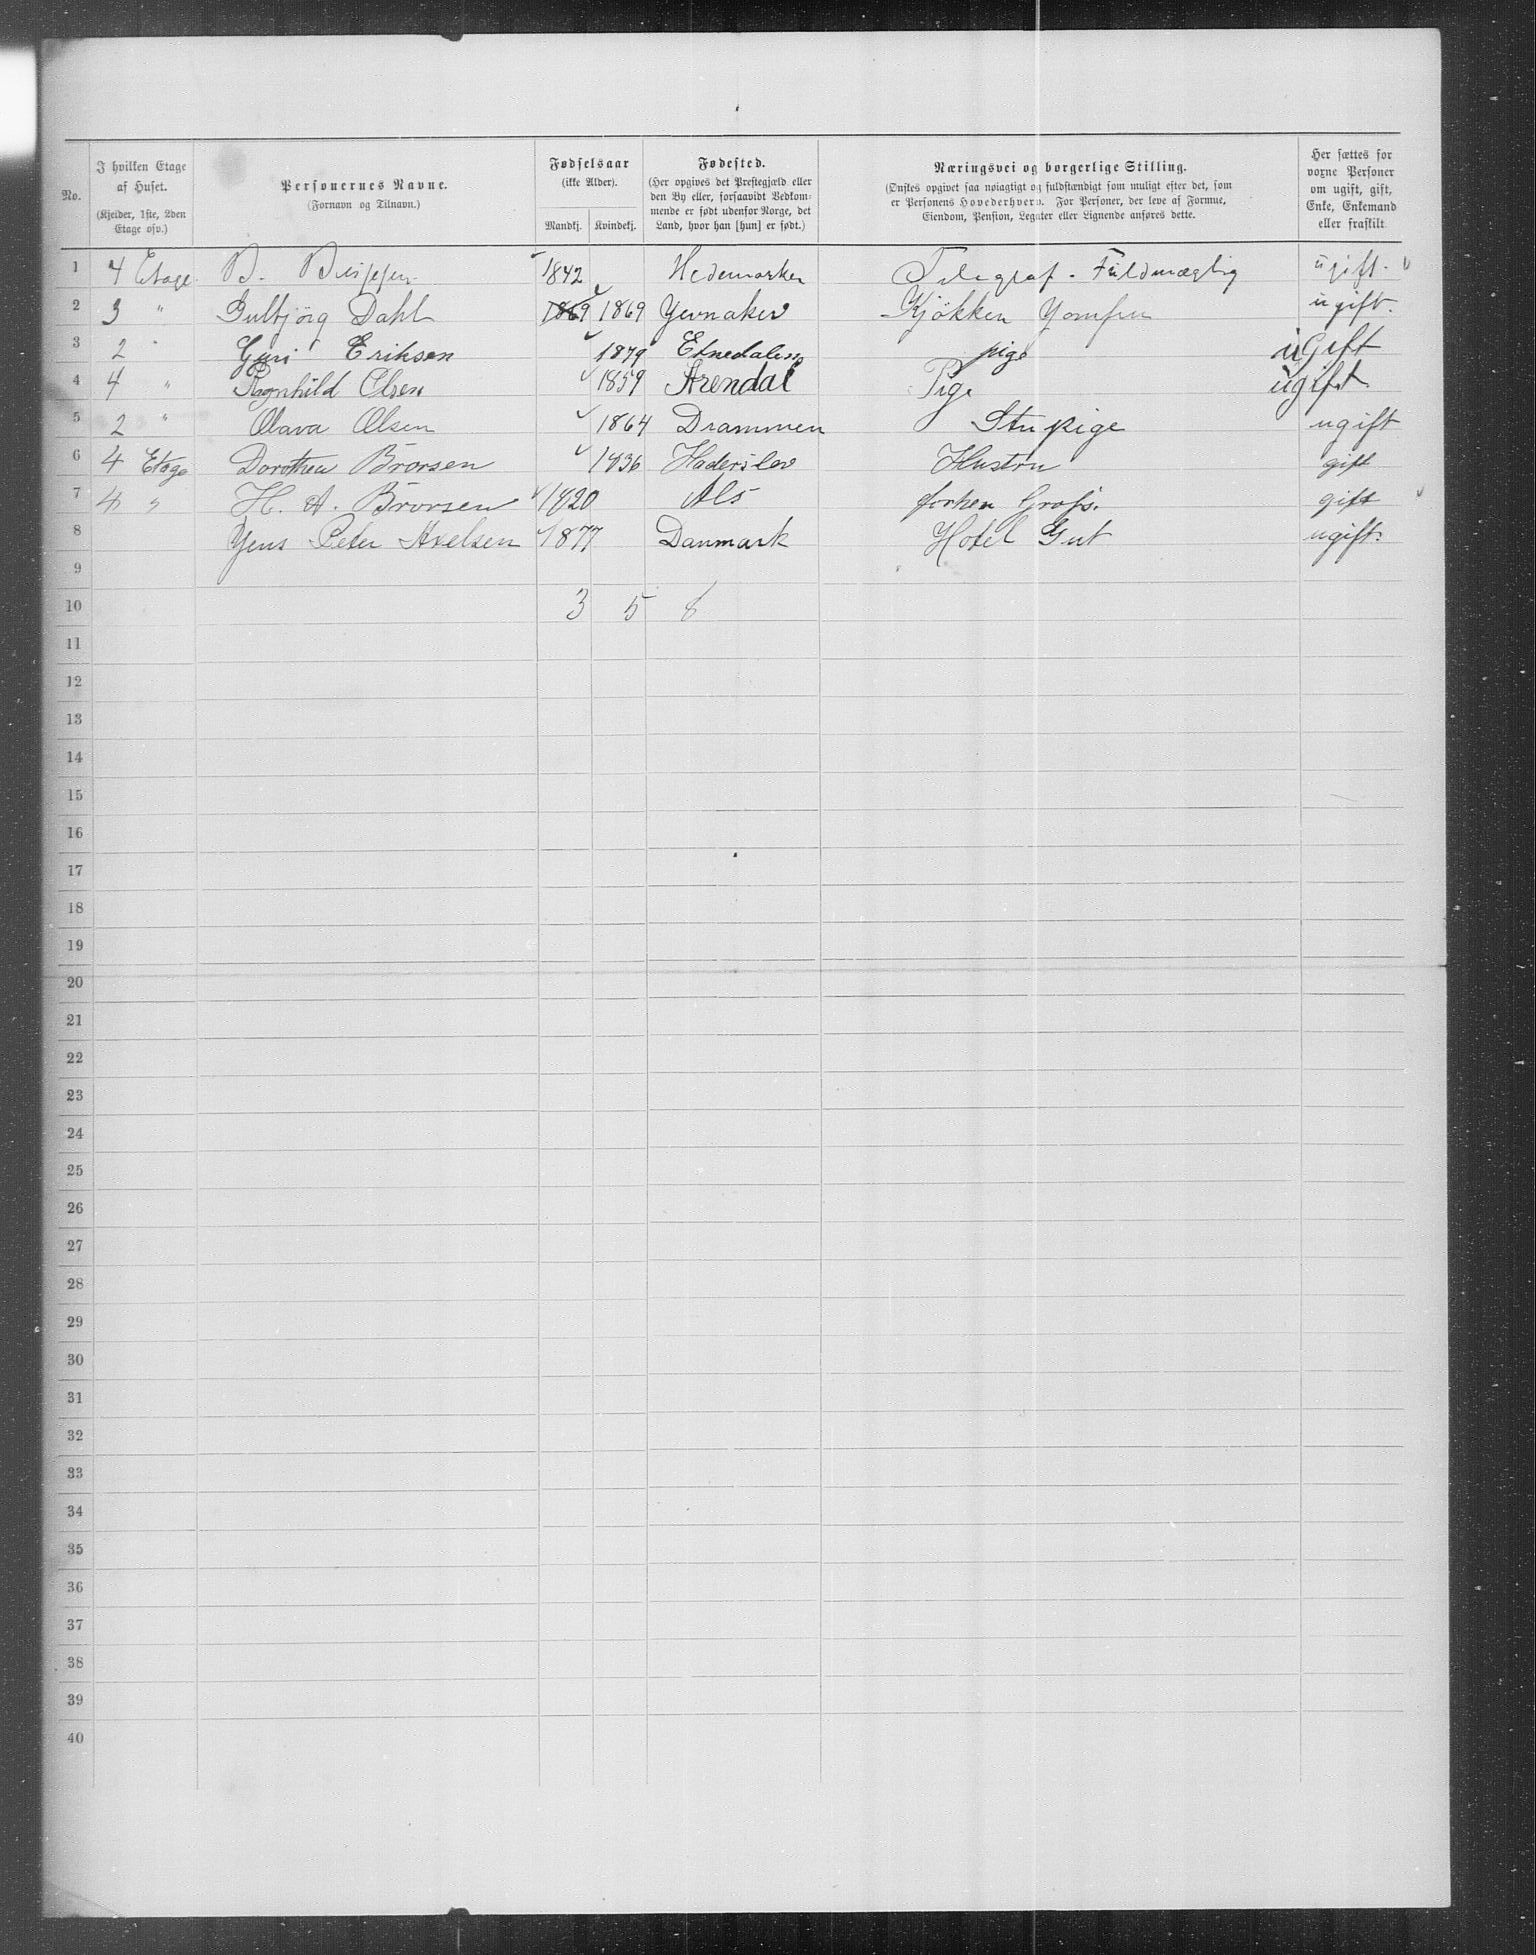 No. I hvilken Etage af Huset. (Kjelder, 1ste, 2den Etage osv.) Personernes Navne. (Fornavn og Tilnavn.) Fødselsaar (ikke Alder). Mandkj. Kvindekj. Fødested. (Her opgives det Prestegjæld eller den By eller, forsaavidt Vedkommende er født udenfor Norge, det Land, hvor han [hun] er født.) Næringsvei og borgerlige Stilling. (Ønskes opgivet saa nøiagtigt og fuldstændigt som muligt efter det, som er Personens Hovederhverv. For Personer, der leve af Formue, Eiendom, Pension, Legater eller Lignende anføres dette. Her sættes for voxne Personer om ugift, gift, Enke, Enkemand eller fraskilt
1 4 Etage B. 1842 Hedemarken Telegraf-Fuldmægtig ugift.
2 3 " Gulbjörg Dahl 1869 1869 Yevnaker Kjökken Yomfru ugift.
3 2 " Guri Eriksen 1879 Etnedalen pige uGift
4 4 " Ragnhild Olsen 1859 Arendal Pige ugift
5 2 " Olava Olsen 1864 Drammen Stupige ugift
6 4 Etage Dorothea Brorsen 1836 Haderslev Hustru gift
7 4 " H. A. Brorsen 1820 Als forhen Gross. gift
8 Yens Peter Axelsen 1877 Danmark Hotel Gut ugift.
9
10 3 5 8
11
12
13
14
15
16
17
18
19
20
21
22
23
24
25
26
27
28
29
30
31
32
33
34
35
36
37
38
39
40